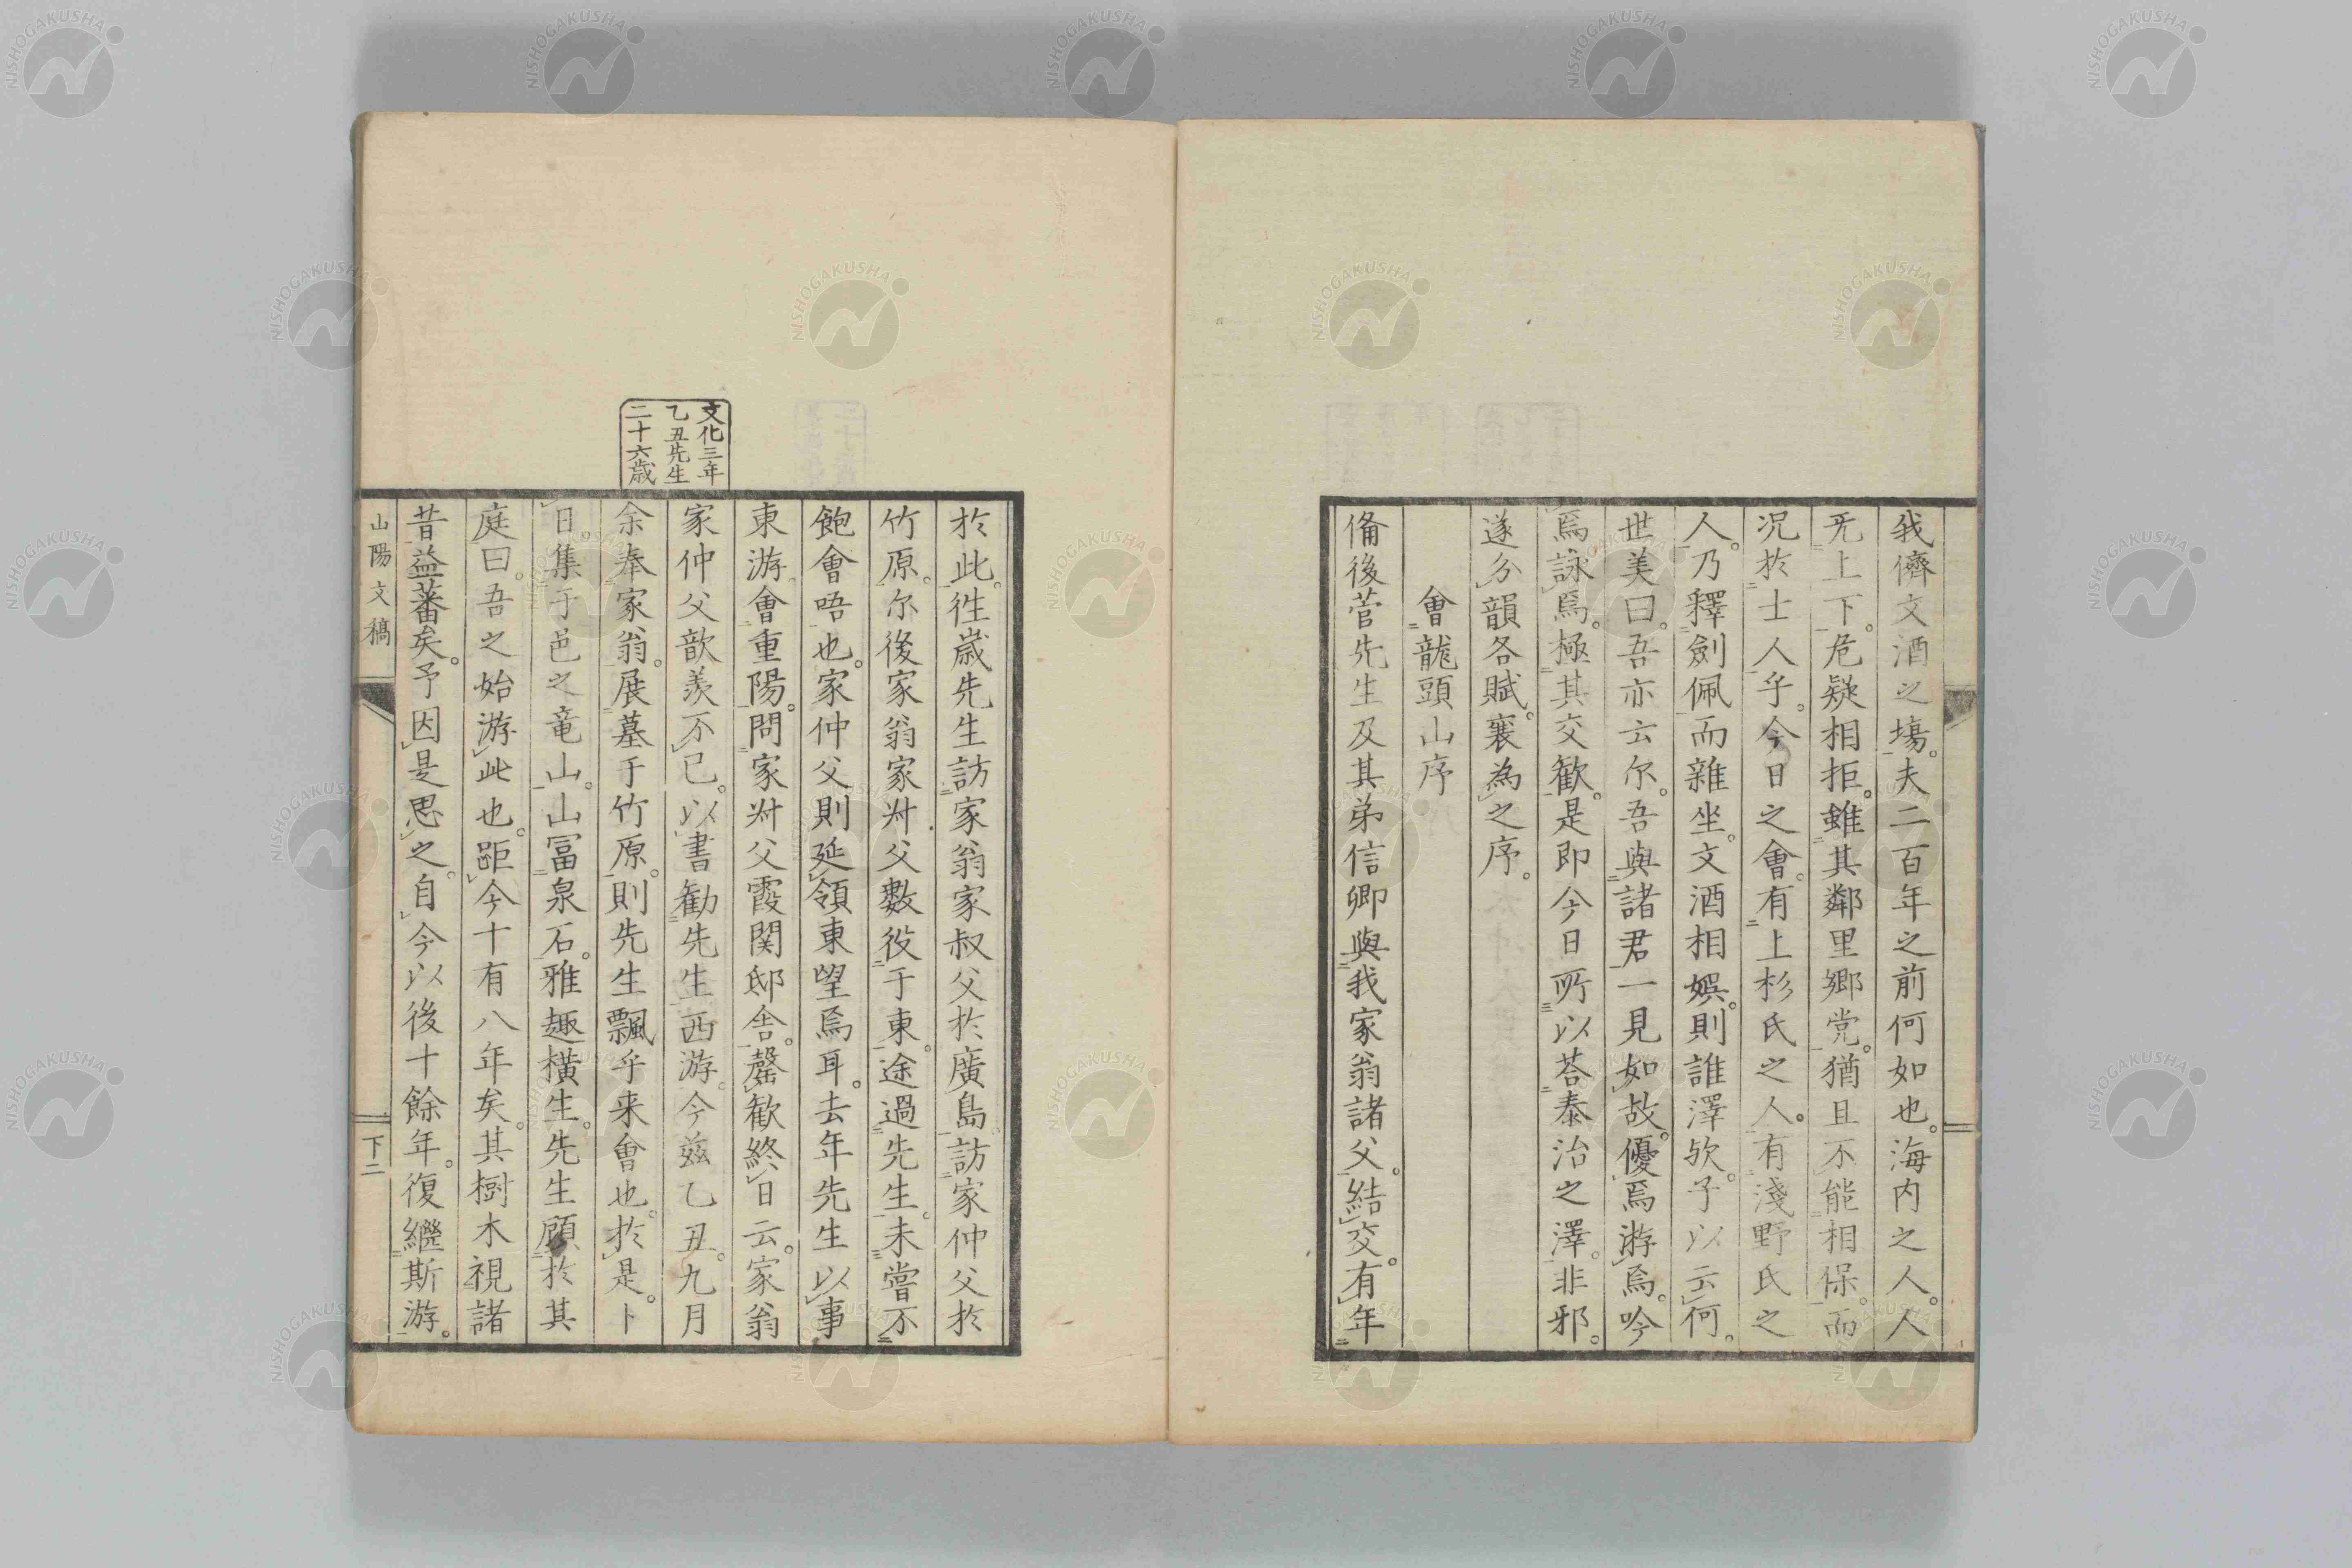 我儕文酒之場。夫二百年之前何如也。海内之人。人
无上下。危疑相拒。雖其鄰里郷党。猶且不能相保。而
况於士人乎。今日之會。有上杉氏之人。有淺野氏之
人。乃釋劍佩而雜坐。文酒相娯。則誰澤欤。子以云何。
世美曰。吾亦云尓。吾與諸君一見如故。優焉游焉。吟
焉詠焉。極其交歓。是即今日所以荅泰治之澤。非邪。
遂分韻各賦。襄為之序。
會龍頭山序
俻後菅先生及其弟信卿與我家翁諸父。結交。有年
於此。徃歳先生訪家翁家叔父於廣島。訪家仲父於
竹原。尓後家翁家叔父數役于東。途過先生。未嘗不
飽會唔也。家仲父則延領東望焉耳。去年先生以事
東游。會重陽。問家叔父霞関邸舎。罄歓終日云。家翁
家仲父歆羨不已。以書勧先生西游。今茲乙丑。九月
余奉家翁。展墓于竹原。則先生飄乎来會也。於是。卜
日。集于邑之竜山。山冨泉石。雅趣横生。先生顧於其
庭曰。吾之始游此也。距今十有八年矣。其樹木視諸
昔益蕃矣。予因是思之。自今以後十餘年。復繼斯游。
文化三年
乙丑先生
二十六歳
山陽文稿
下二
NISHOGAKUSHA